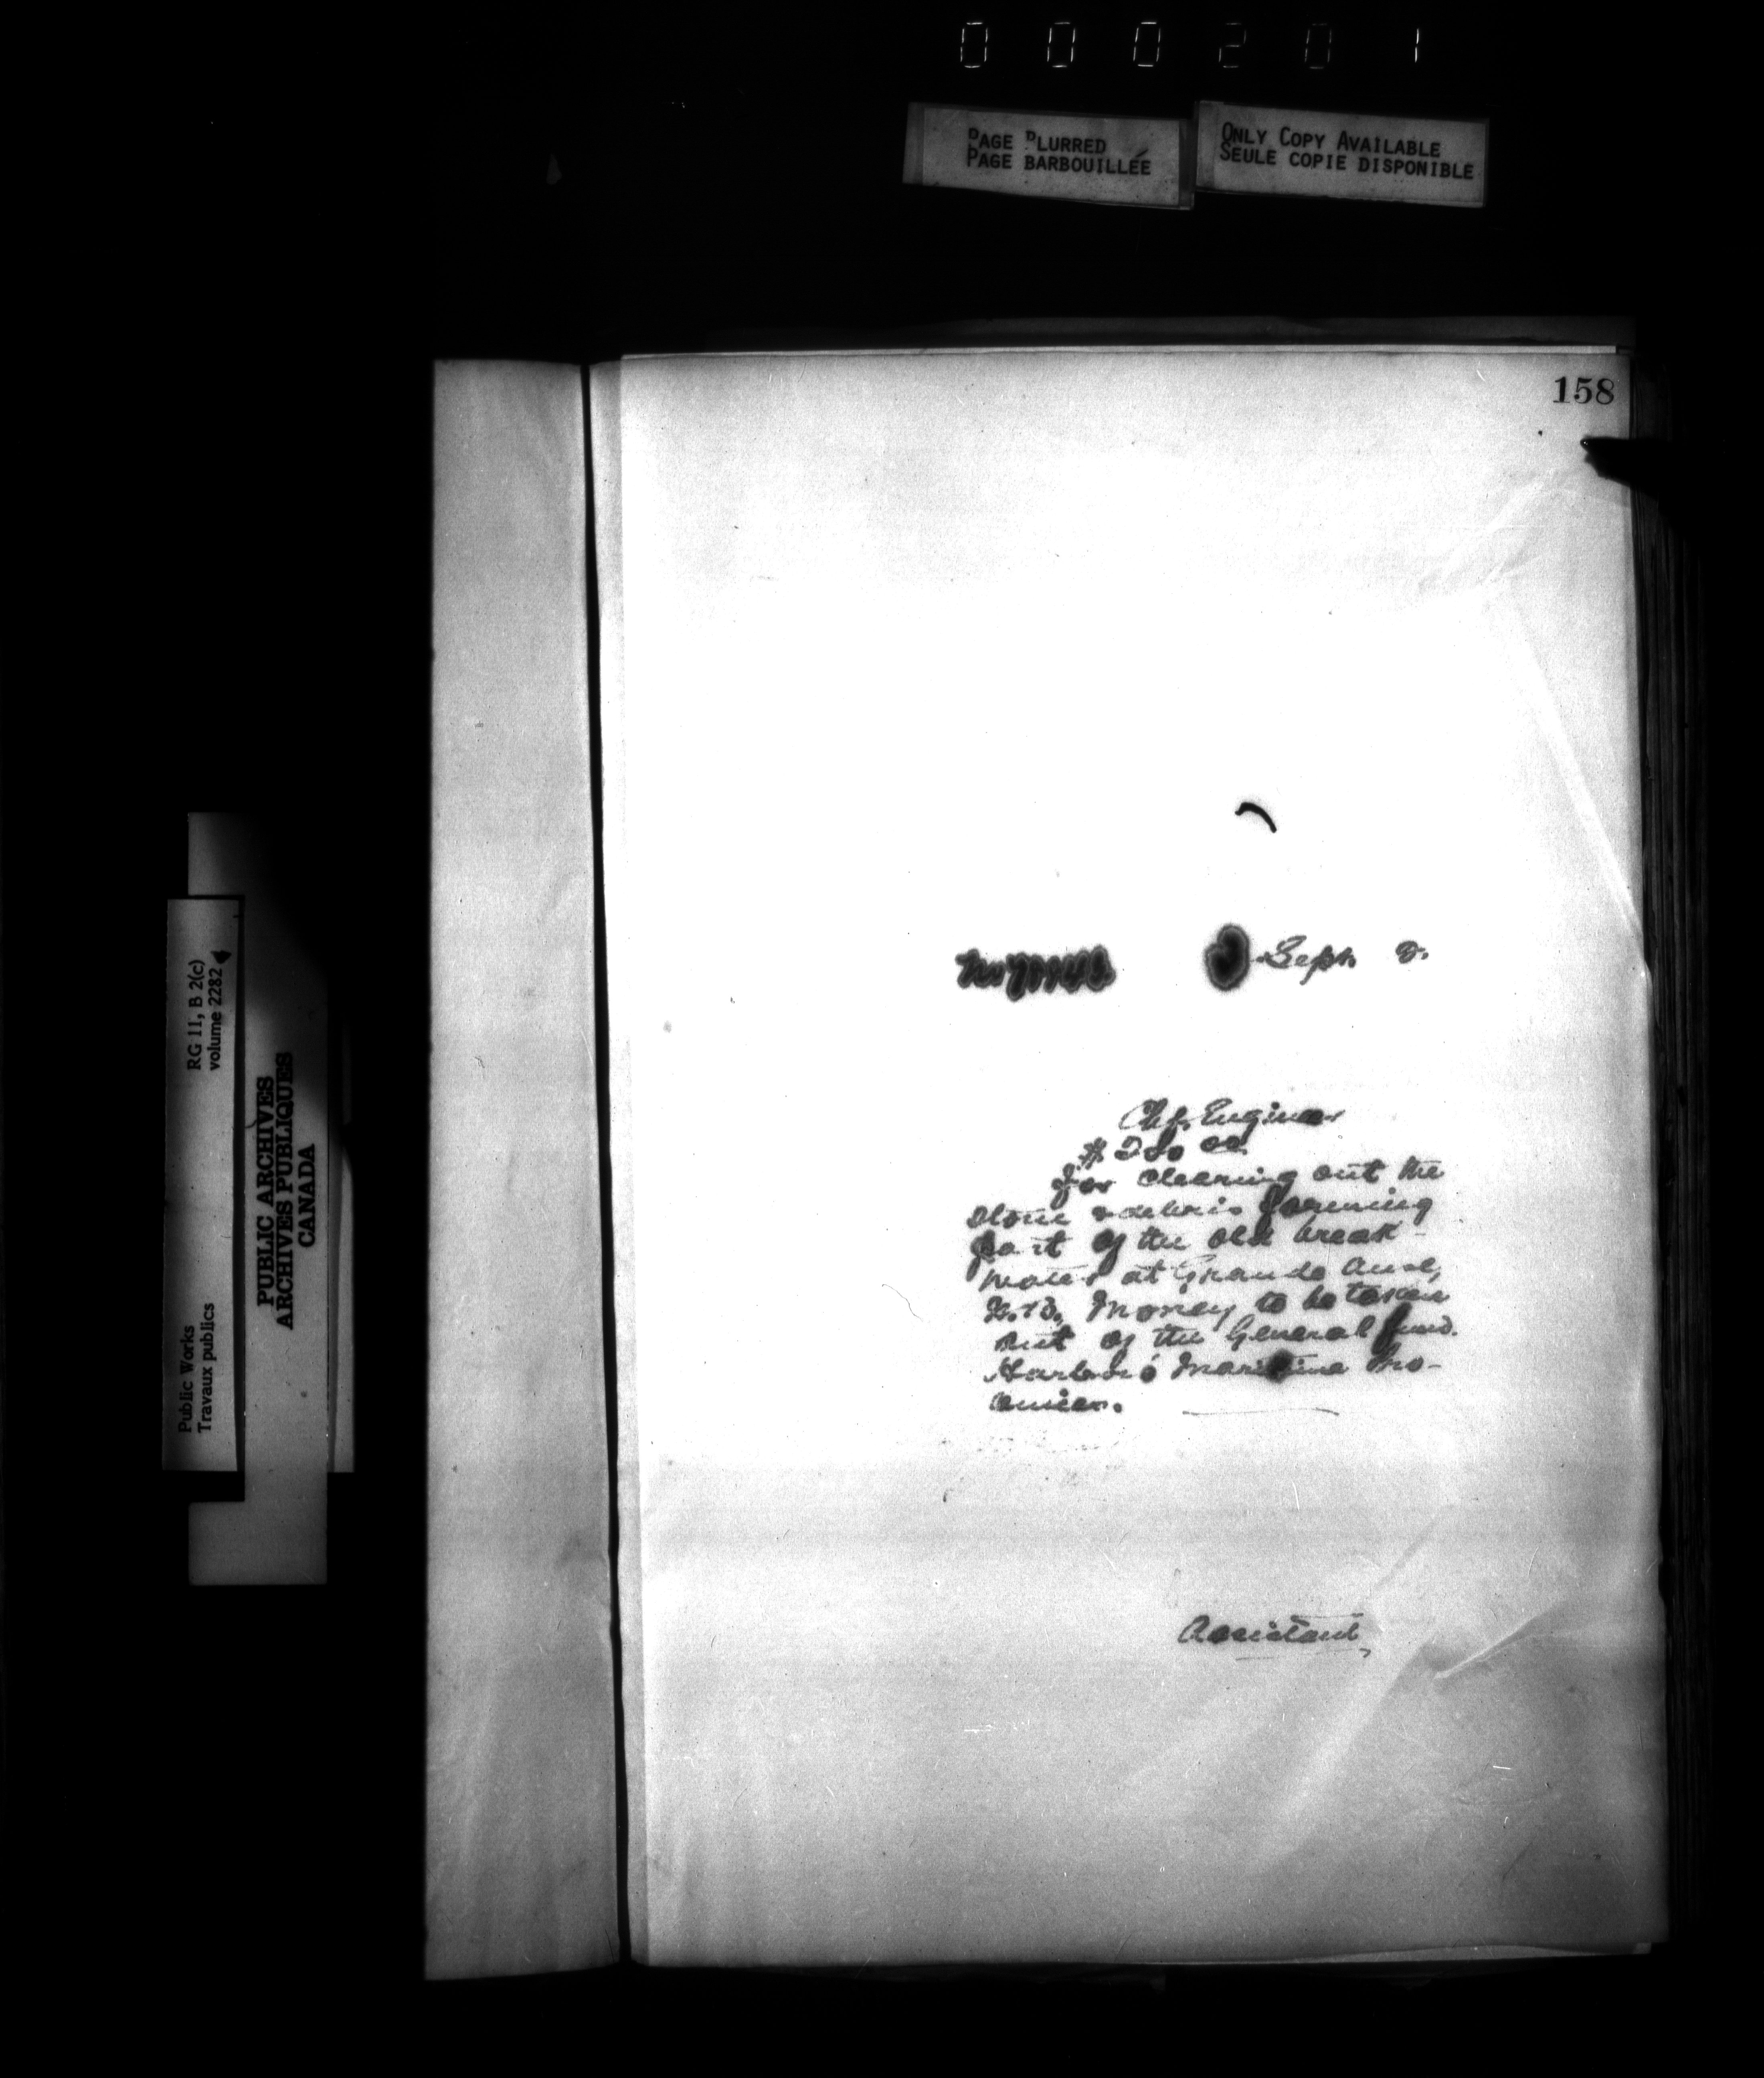 000201
PAGE BLURRED
PAGE BARBOUILLÉE
ONLY COPY AVAILABLE
SEULE COPIE DISPONIBLE
158
Sept.
Chf. Engineer
for cleaning out the
stone & debris forming
part of the old break-
water at Grande Anse,
N.B. Money to be taken
out of the General fund.
Harbors Maritime Pro-
vinces.
Assistant
Public Works
Travaux publics
RG 11, B 2(c)
volume 2282
PUBLIC ARCHIVES
ARCHIVES PUBLIQUES
CANADA